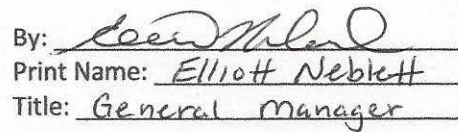 By:
Print Name: Elliott Neblett
Title: General Manager